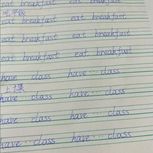 eat breakfast eat breakfast
吃早饭
eat breakfast eat breakfast
eat breakfast eat breakfast
eat breakfast eat breakfast
have class have class
上课
have class have class
have class have class
have class have class